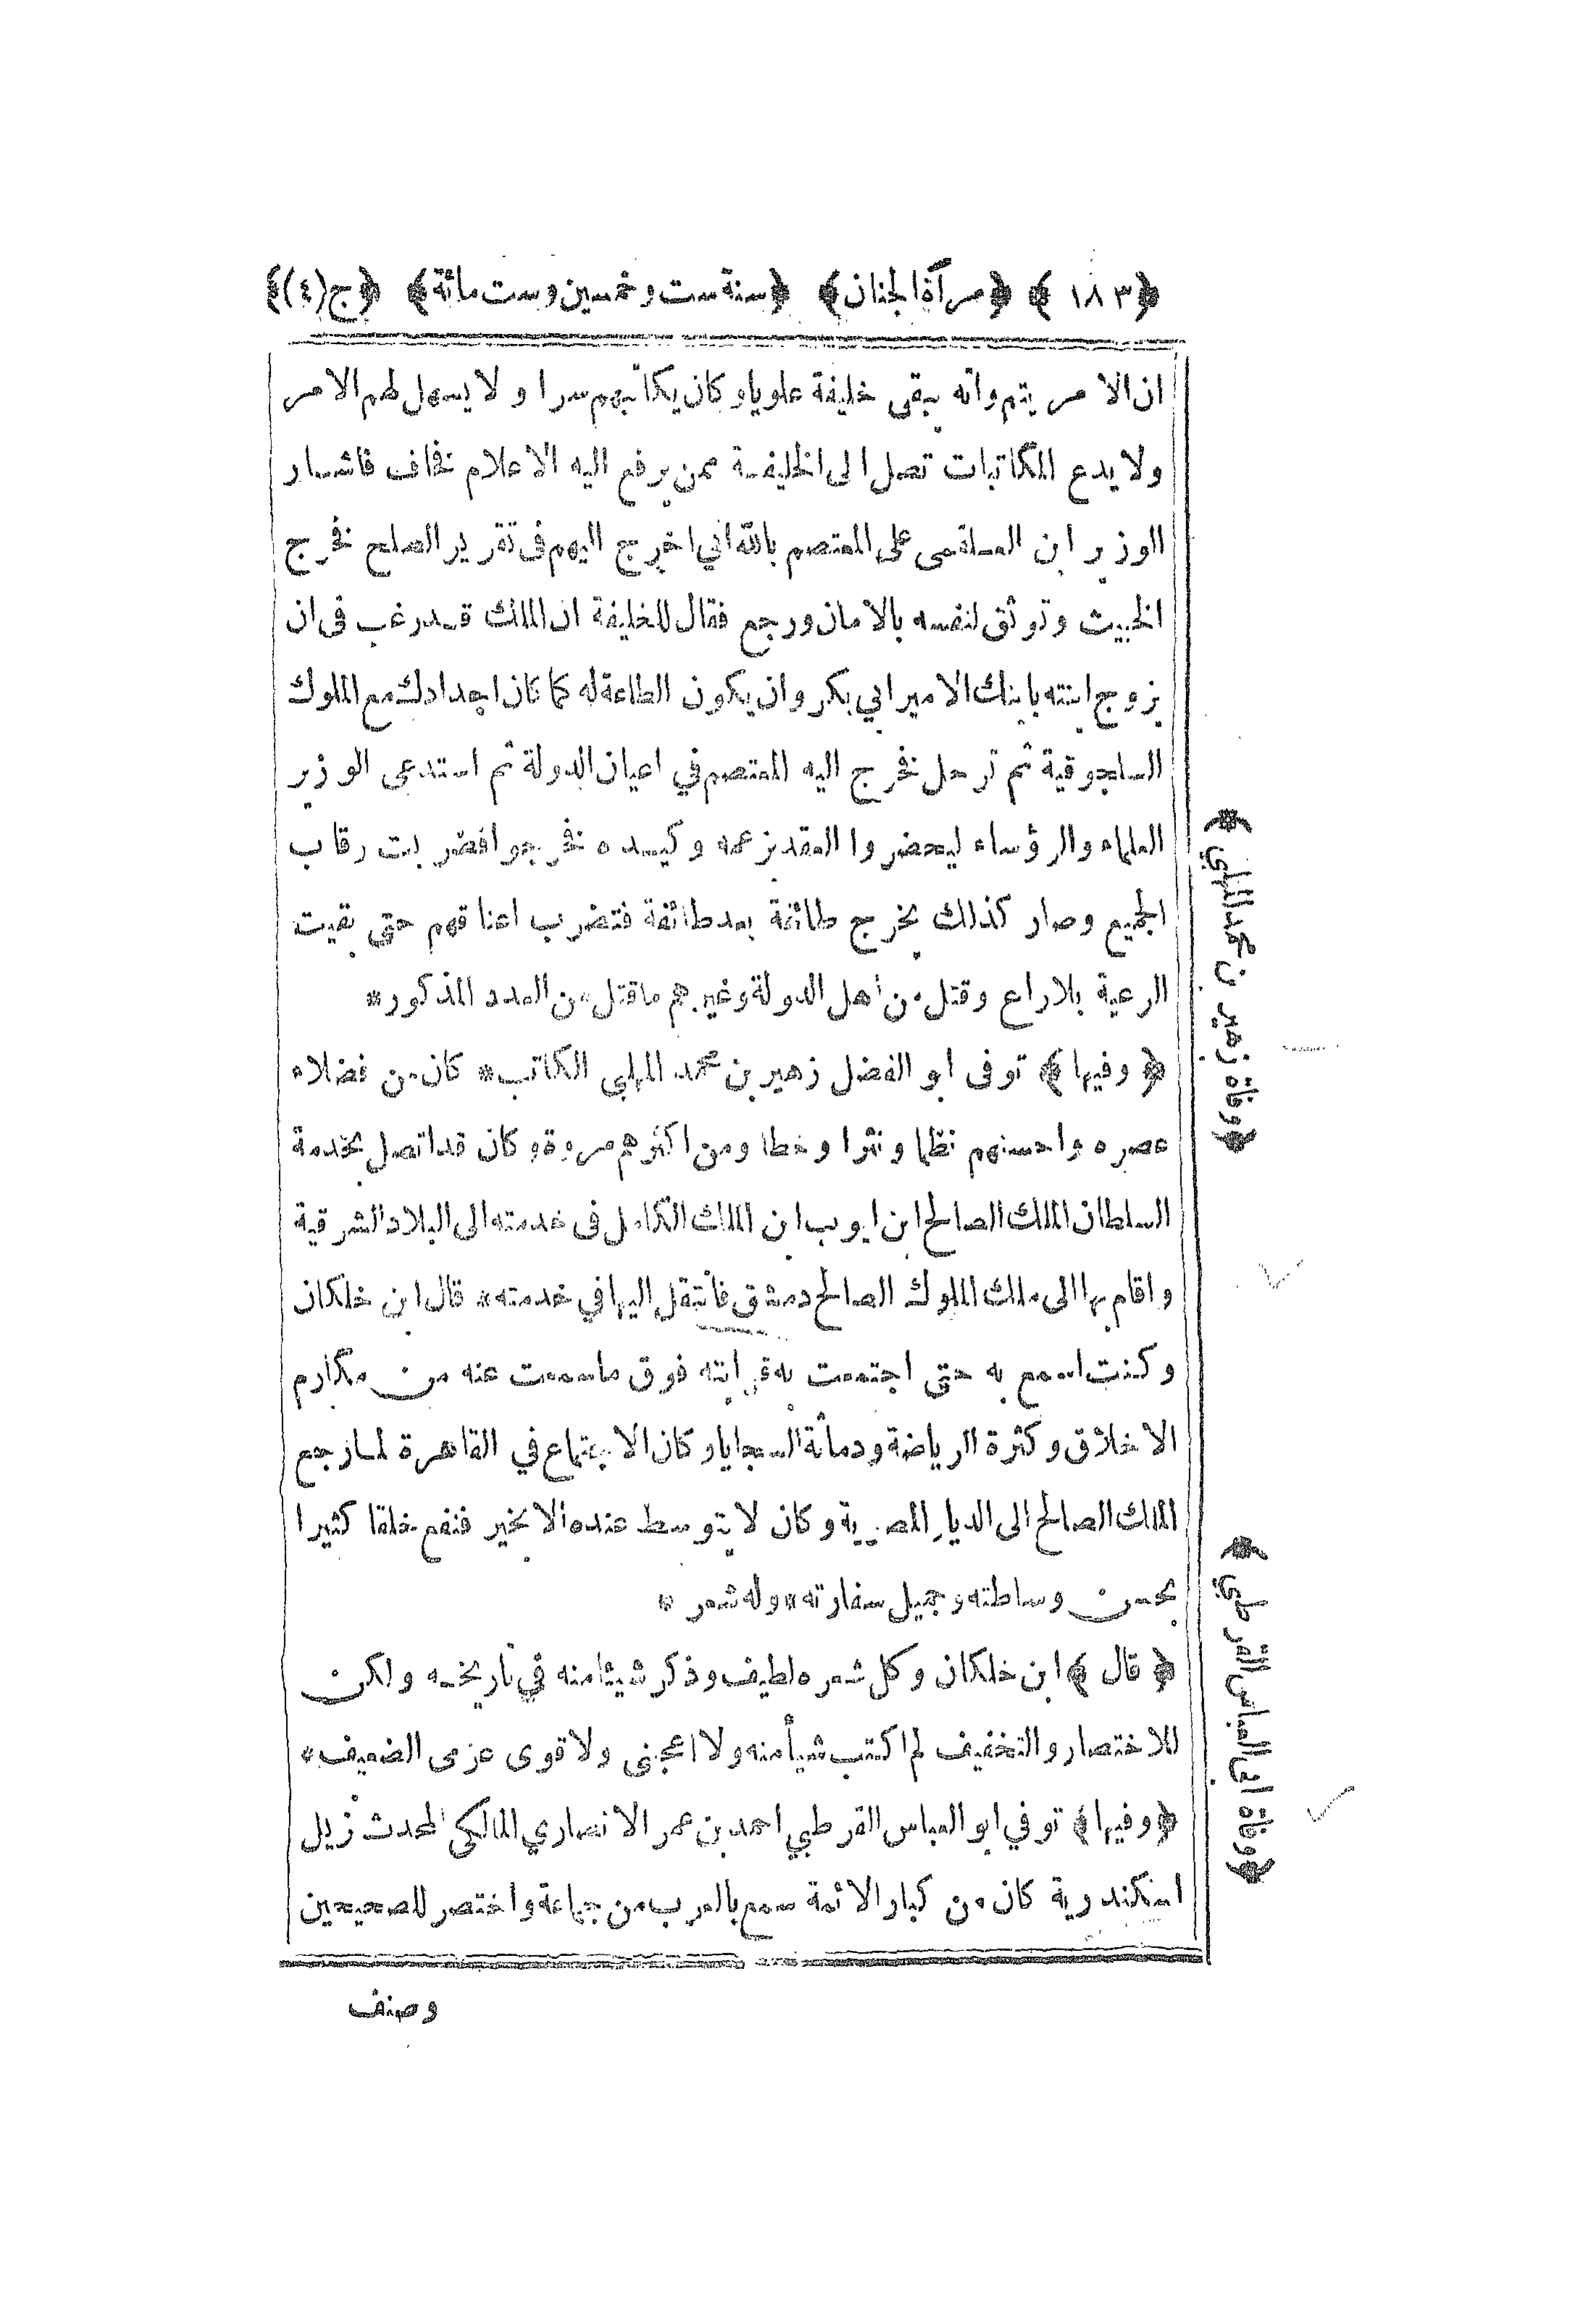 ﴿١٨٣﴾ ﴿مرآة الجنان﴾ ﴿سنة ست وخمسين وست مائة﴾ ﴿ج(٤)﴾
ان الامر يتم وانه يبقى خليفة علويا وكان يكاتبهم سرا ولا يسهل لهم الامر
ولا يدع المكاتبات تصل الى الخليفة ممن يرفع اليه الاعلام فخاف فاشار
الوزير ابن العلقمى على المعتصم بالله اني اخرج اليهم فى تقرير الصلح فخرج
الخبيث وتوثق لنفسه بالامان ورجع فقال للخليفة ان الملك قد رغب فى ان
يزوج ابنته بابنك الامير ابي بكر وان يكون الطاعة له كما كان اجدادك مع الملوك
السلجوقية ثم ترحل فخرج اليه المعتصم في اعيان الدولة ثم استدعى الوزير
العلماء والرؤساء ليحضروا العقد بزعمه وكيده فخرجوا فضربت رقاب
الجميع وصار كذلك يخرج طائفة بعد طائفة فتضرب اعناقهم حتى بقيت
الرعية بلا راع وقتل من أهل الدولة وغيرهم ما قتل من العدد المذكور*
﴿وفيها﴾ توفى ابو الفضل زهير بن محمد المهلبى الكاتب* كان من فضلاء
عصره واحسنهم نظما ونثرا وخطا ومن اكثرهم مروة وكان قد اتصل بخدمة
السلطان الملك الصالح ابن ايوب ابن الملك الكامل فى خدمته الى البلاد الشرقية
واقام بها الى ملك الملوك الصالح دمشق فانتقل اليها في خدمته* قال ابن خلكان
وكنت اسمع به حتى اجتمعت به فرايته فوق ما سمعت عنه من مكارم
الاخلاق وكثرة الرياضة ودماثة السجايا وكان الاجتماع في القاهرة لما رجع
الملك الصالح الى الديار المصرية وكان لا يتوسط عنده الا بخير فنفع خلقا كثيرا
بحسن وساطته وجميل سفارته* وله شعر*
﴿قال﴾ ابن خلكان وكل شعره لطيف وذكر شيئا منه في تاريخه ولكن
للاختصار والتخفيف لم اكتب شيأ منه ولا اعجبنى ولا قوى عزمى الضعيف*
﴿وفيها﴾ توفي ابو العباس القرطبي احمد بن عمر الانصاري المالكى المحدث نزيل
اسكندرية كان من كبار الائمة سمع بالغرب من جماعة واختصر للصحيحين
وصنف
﴿وفاة زهير بن محمد المهلبي﴾
﴿وفاة ابى العباس القرطبي﴾